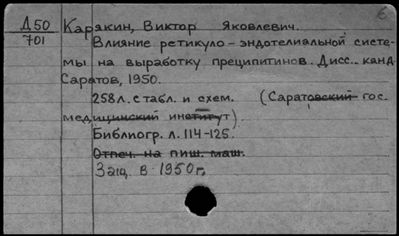 6
Д50
701
Карякин, Виктор Яковлевич.
Влияние ретикуло-эндотелиальной систе-
мы на выработку преципитинов. Дисс... канд.
Саратов, 1950.
258л. с табл. и схем. (Саратовский гос.
медицинский институт).
Библиогр. л. 114-125.
Отпеч. на пиш. маш.
Защ. в 1950г.